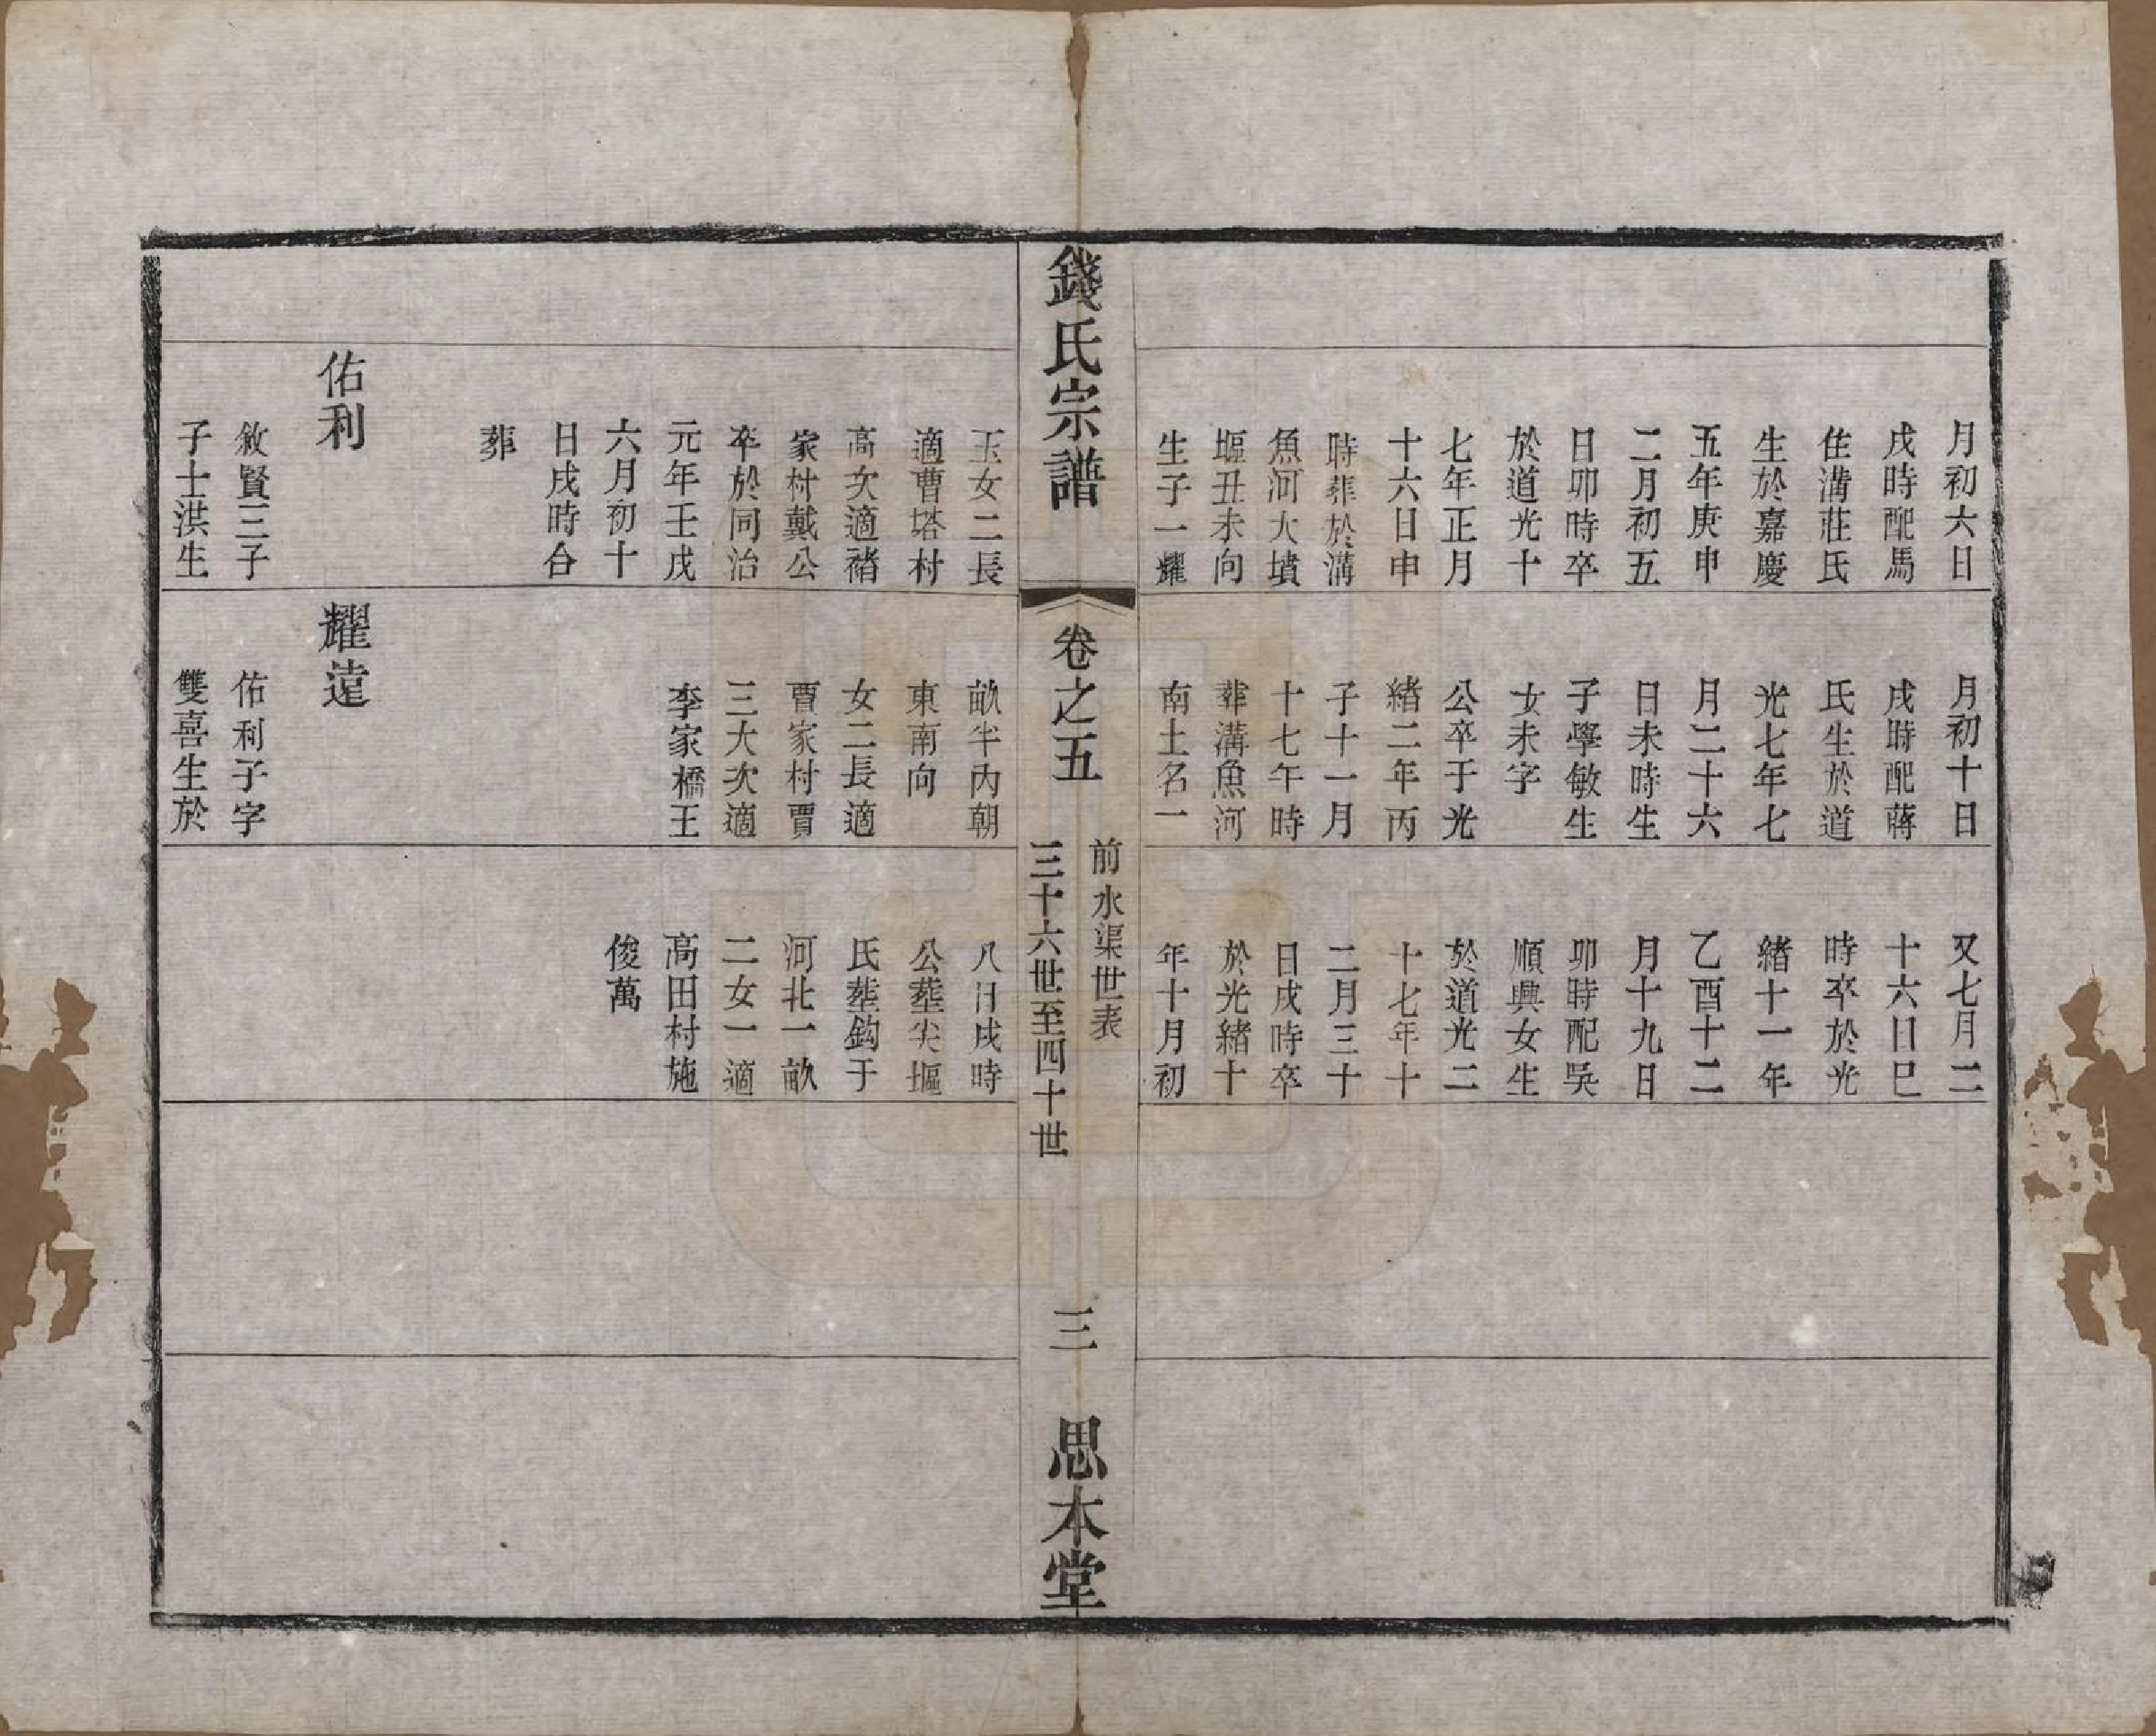 月初六日
戌時配馬
住溝莊氏
生於嘉慶
五年庚申
二月初五
日卯時卒
於道光十
七年正月
十六日申
時葬於溝
魚河大墳
堰丑未向
生子一耀
月初十日
戌時配蔣
氏生於道
光七年七
月二十六
日未時生
子學敏生
女未字
公卒于光
緒二年丙
子十一月
十七午時
葬溝魚河
南土名一
又七月二
十六日巳
時卒於光
緒十一年
乙酉十二
月十九日
卯時配吳
順興女生
於道光二
十七年十
二月三十
日戌時卒
於光緒十
年十月初
錢氏宗譜
卷之五
前水渠世表
三十六世至四十世
三
思本堂
玉女二長
適曹塔村
高次適褚
家村戴公
卒於同治
元年壬戌
六月初十
日戌時合
葬
佑利
敘賢三子
子士洪生
畝半丙朝
東南向
女二長適
賈家村賈
三大次適
李家橋王
耀遠
佑利子字
雙喜生於
八日戌時
公塟尖堰
氏塟鈎于
河北一畝
二女一適
高田村施
俊萬